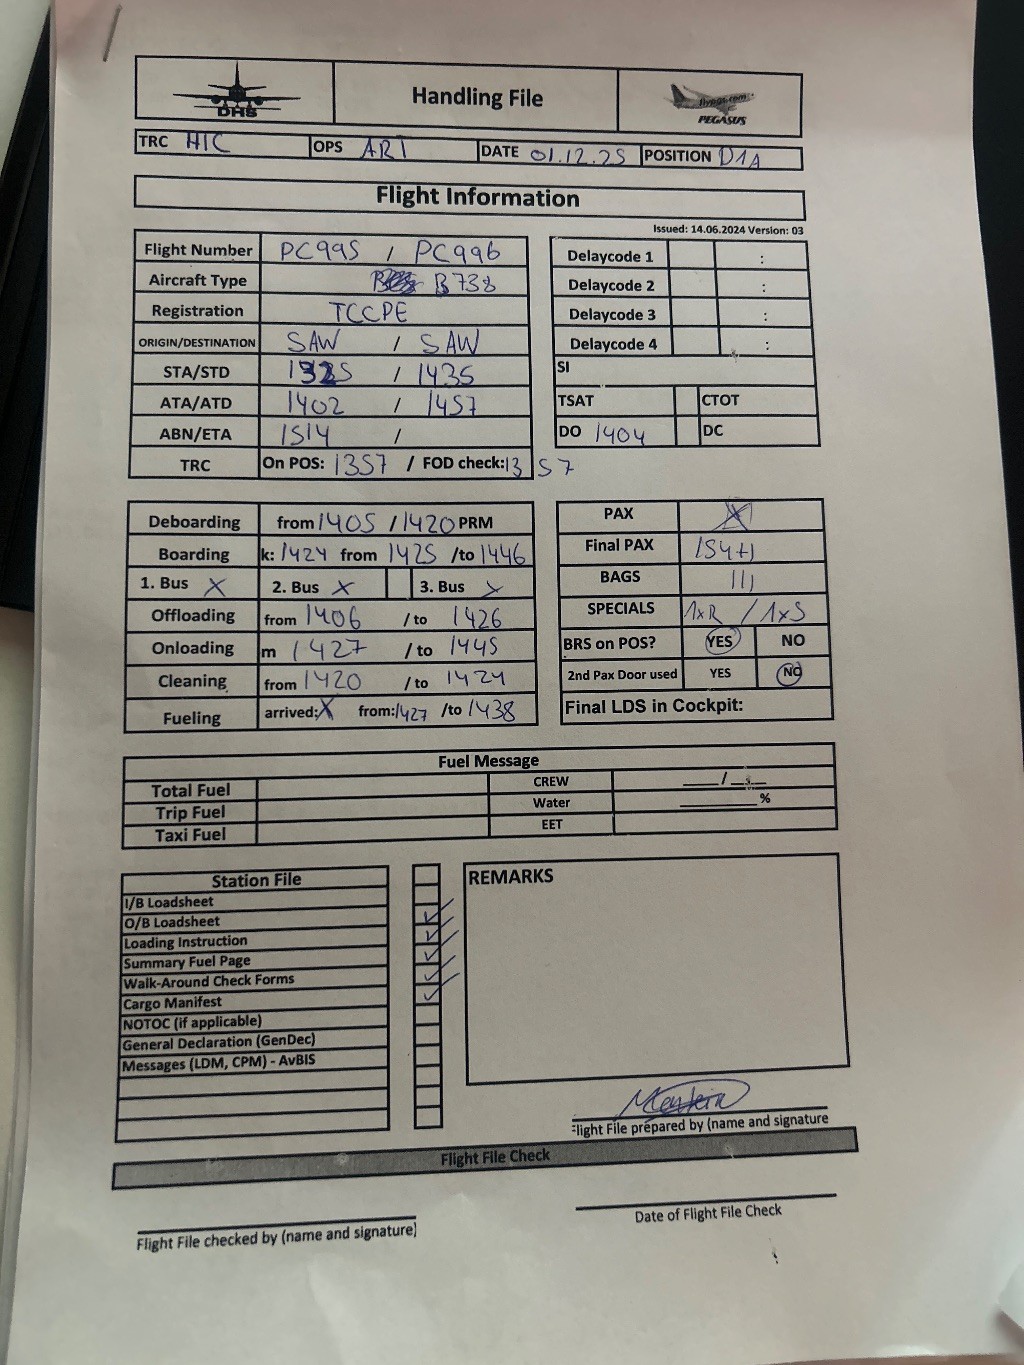 DHS
Handling File
flypgs.com
PEGASUS
TRC HIC OPS ART DATE 01.12.25 POSITION D1A
Flight Information
Issued: 14.06.2024 Version: 03
Flight Number PC995 / PC996
Aircraft Type B738
Registration TCCPE
ORIGIN/DESTINATION SAW / SAW
STA/STD / 1435
ATA/ATD 1402 / 1457
ABN/ETA 1514 /
TRC On POS: 1357 / FOD check: 13 57
Delaycode 1 :
Delaycode 2 :
Delaycode 3 :
Delaycode 4 :
SI
TSAT CTOT
DO 1404 DC
Deboarding from 1405 / 1420 PRM
Boarding k: 1424 from 1425 /to 1446
1. Bus X 2. Bus X 3. Bus X
Offloading from 1406 /to 1426
Onloading m 1427 /to 1445
Cleaning from 1420 /to 1424
Fueling arrived: X from: 1427 /to 1438
PAX
Final PAX 154+1
BAGS 111
SPECIALS 1xR / 1xS
BRS on POS? YES NO
2nd Pax Door used YES NO
Final LDS in Cockpit:
Fuel Message
Total Fuel CREW ___/___
Trip Fuel Water ______%
Taxi Fuel EET
Station File
I/B Loadsheet
O/B Loadsheet
Loading Instruction
Summary Fuel Page
Walk-Around Check Forms
Cargo Manifest
NOTOC (if applicable)
General Declaration (GenDec)
Messages (LDM, CPM) - AvBIS
REMARKS
Flight File prepared by (name and signature
Flight File Check
Flight File checked by (name and signature)
Date of Flight File Check